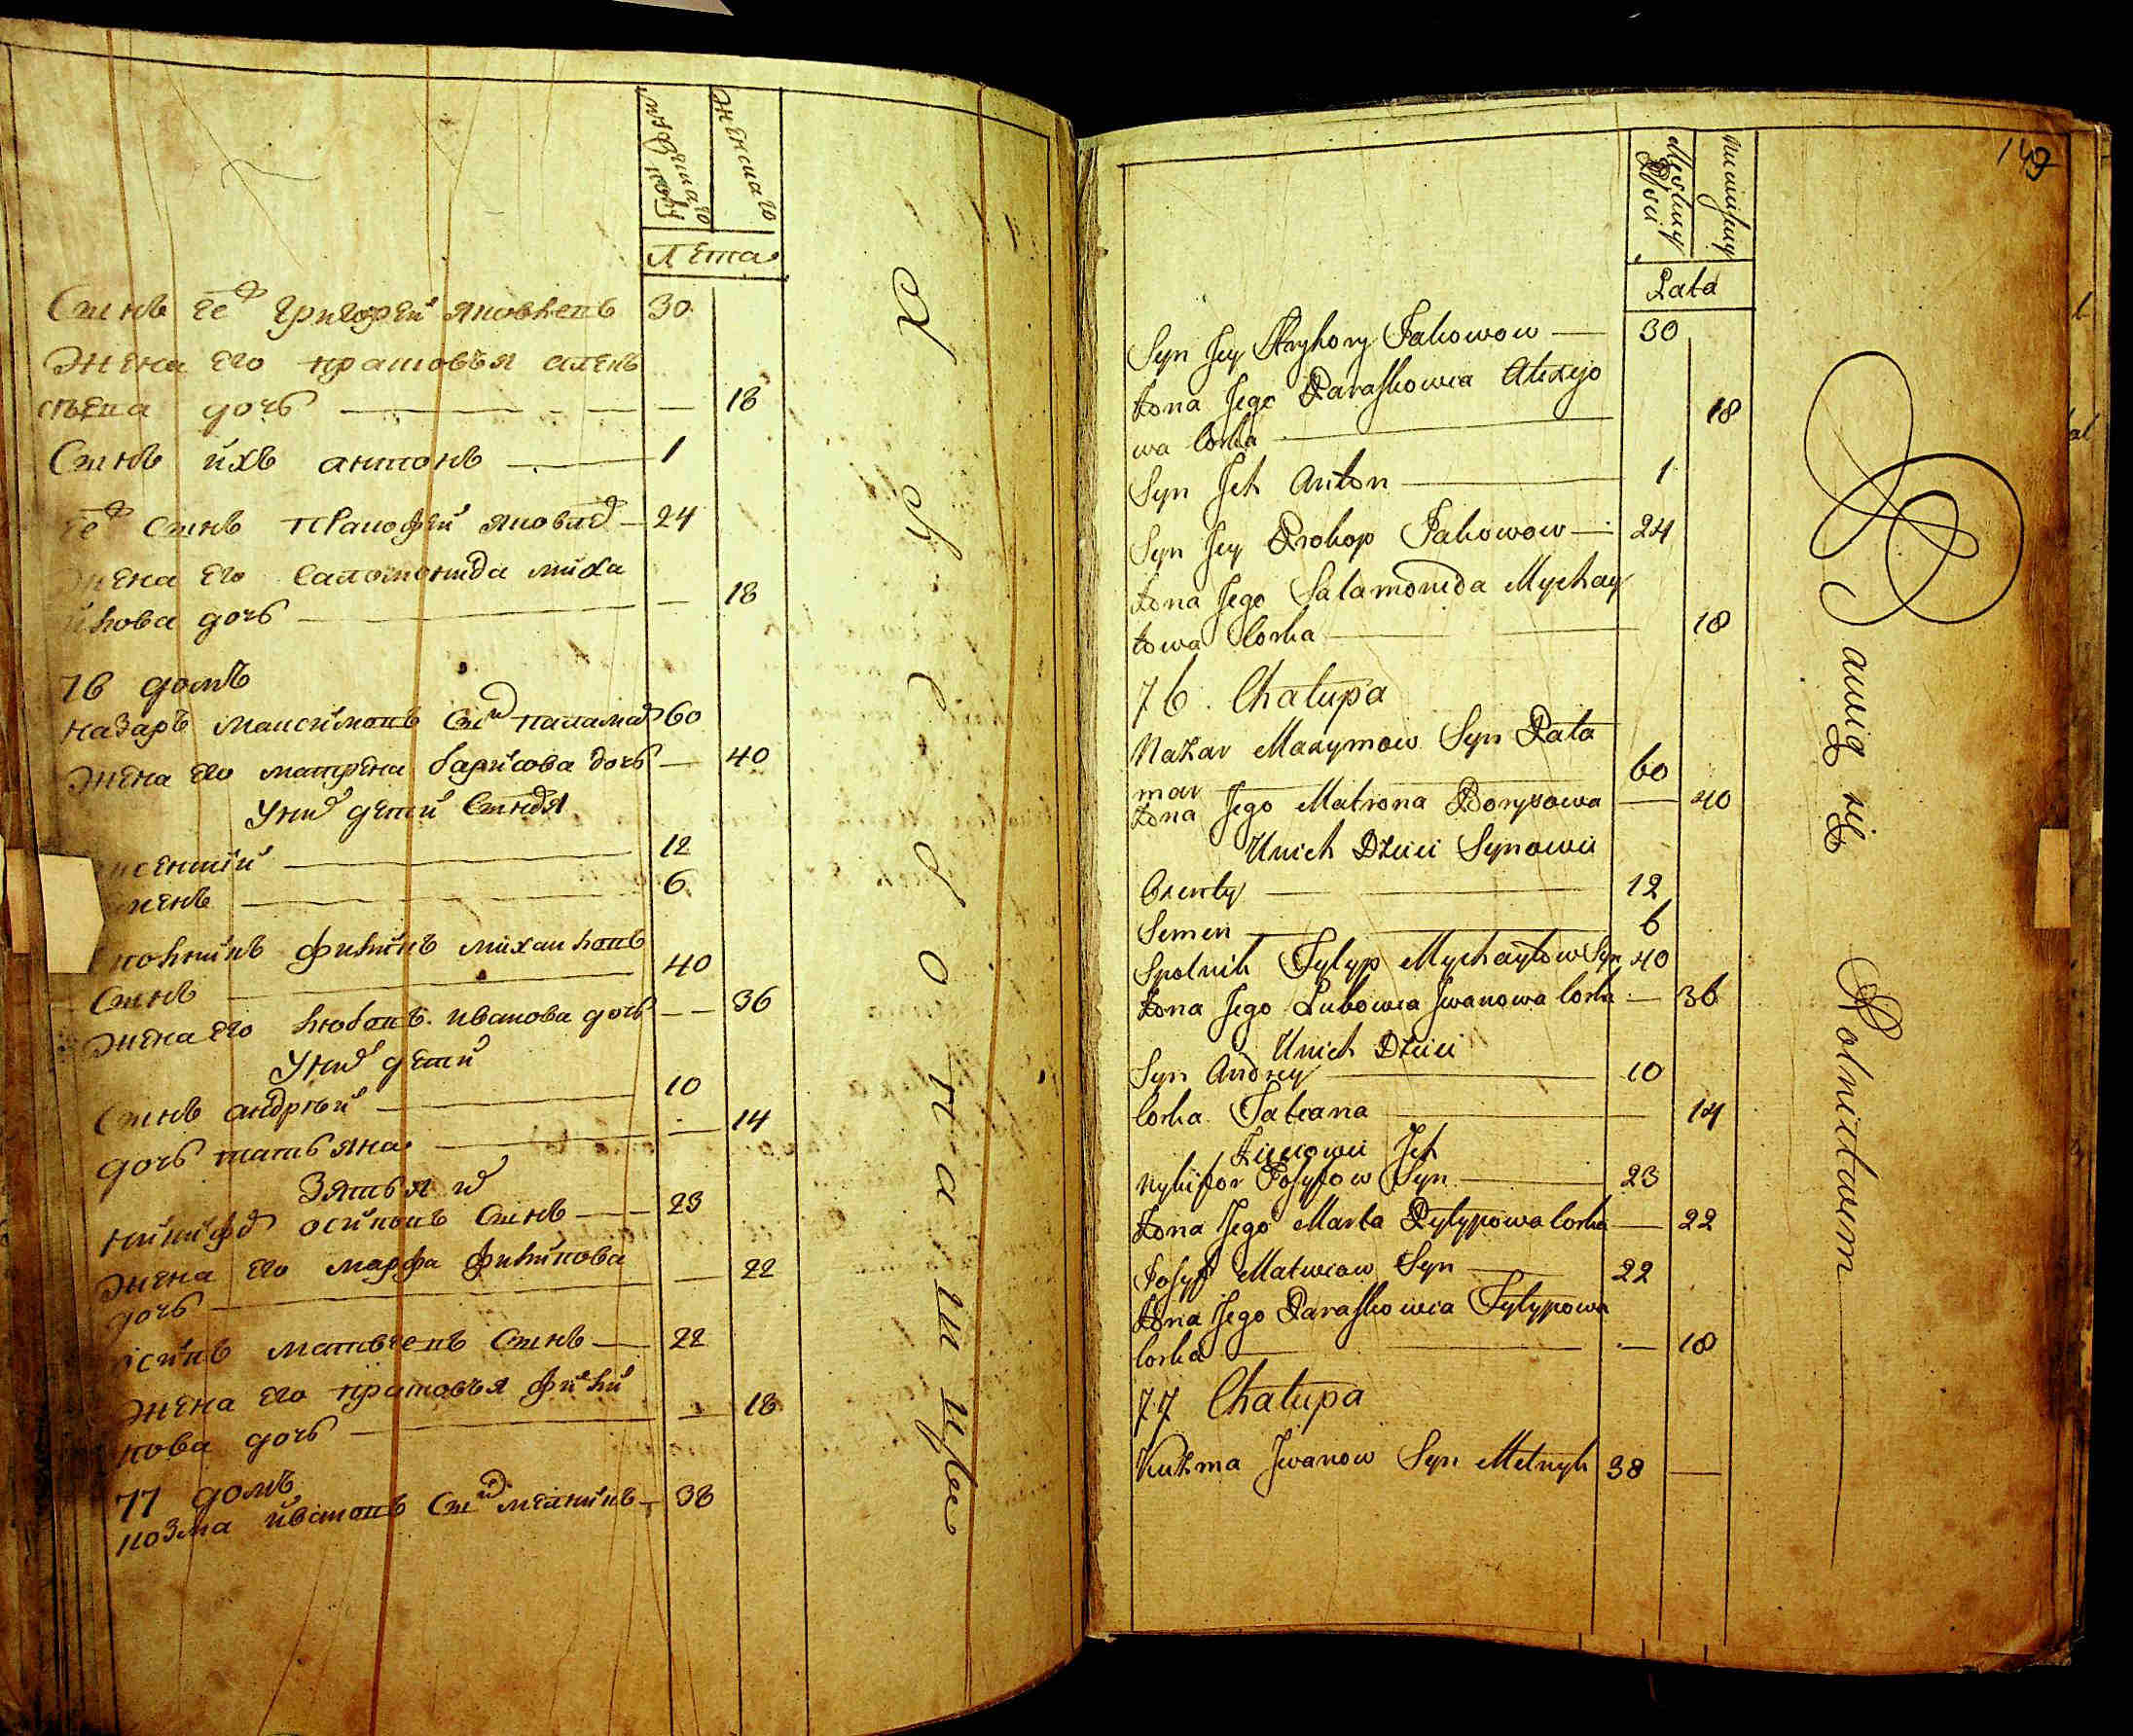 мужеска го
полу
женска го
Лета
Сынъ ее Григорей яковлевъ 30
Жена его прасковья алек
сѣева дочь 18
Сынъ ихъ антонъ 1
ее Сынъ Пракофей яковлев 24
жена его Саломонида миха
йлова дочь 18
76 домъ
назаръ максимовъ Сын паламар 60
жена его матрена барисова дочь 40
У них дети Сыновя
12
6
филипъ михайловъ
Сынъ 40
жена его любовъ иванова дочь 36
У них дети
Сынъ андрѣй 10
дочь татьяна 14
Зятья их
никифор осиповъ Сынъ 23
жена его марфа филипова
дочь 22
осипъ матвѣевъ Сынъ 22
жена его прасковья фили
пова дочь 18
77 домъ
козма ивановъ Сын мелникъ 38
149
Męskiey
Płci
Lata
Syn Jey Hryhory Jakowow 30
Żona Jego Paraskowia Alexijo
wa Corka 18
Syn Jch Anton 1
Syn Jey Prokop Jakowow 24
Żona Jego Salamonida Mychay
łowa Corka 18
76. Chałupa
Nazar Maxymow Syn Pała
mar 60
Żona Jego Matrona Borysowa 40
Unich Dzieci Synowie
Axenty 12
Semen 6
Spolnik Fylyp Mychayłow Syn 40
Żona Jego Lubowia Jwanowa Corka 36
Unich Dzieci
Syn Andrey 10
Corka Tatiana 14
Zięciowie Jch
Nykifor Josypow Syn 23
Żona Jego Marta Pylypowa Corka 22
Josyf Matwiow Syn 22
Żona Jego Paraskowia Fylypowa
Corka 18
77 Chałupa
Kuzma Jwanow Syn Melnyk 38
Rolnictwem